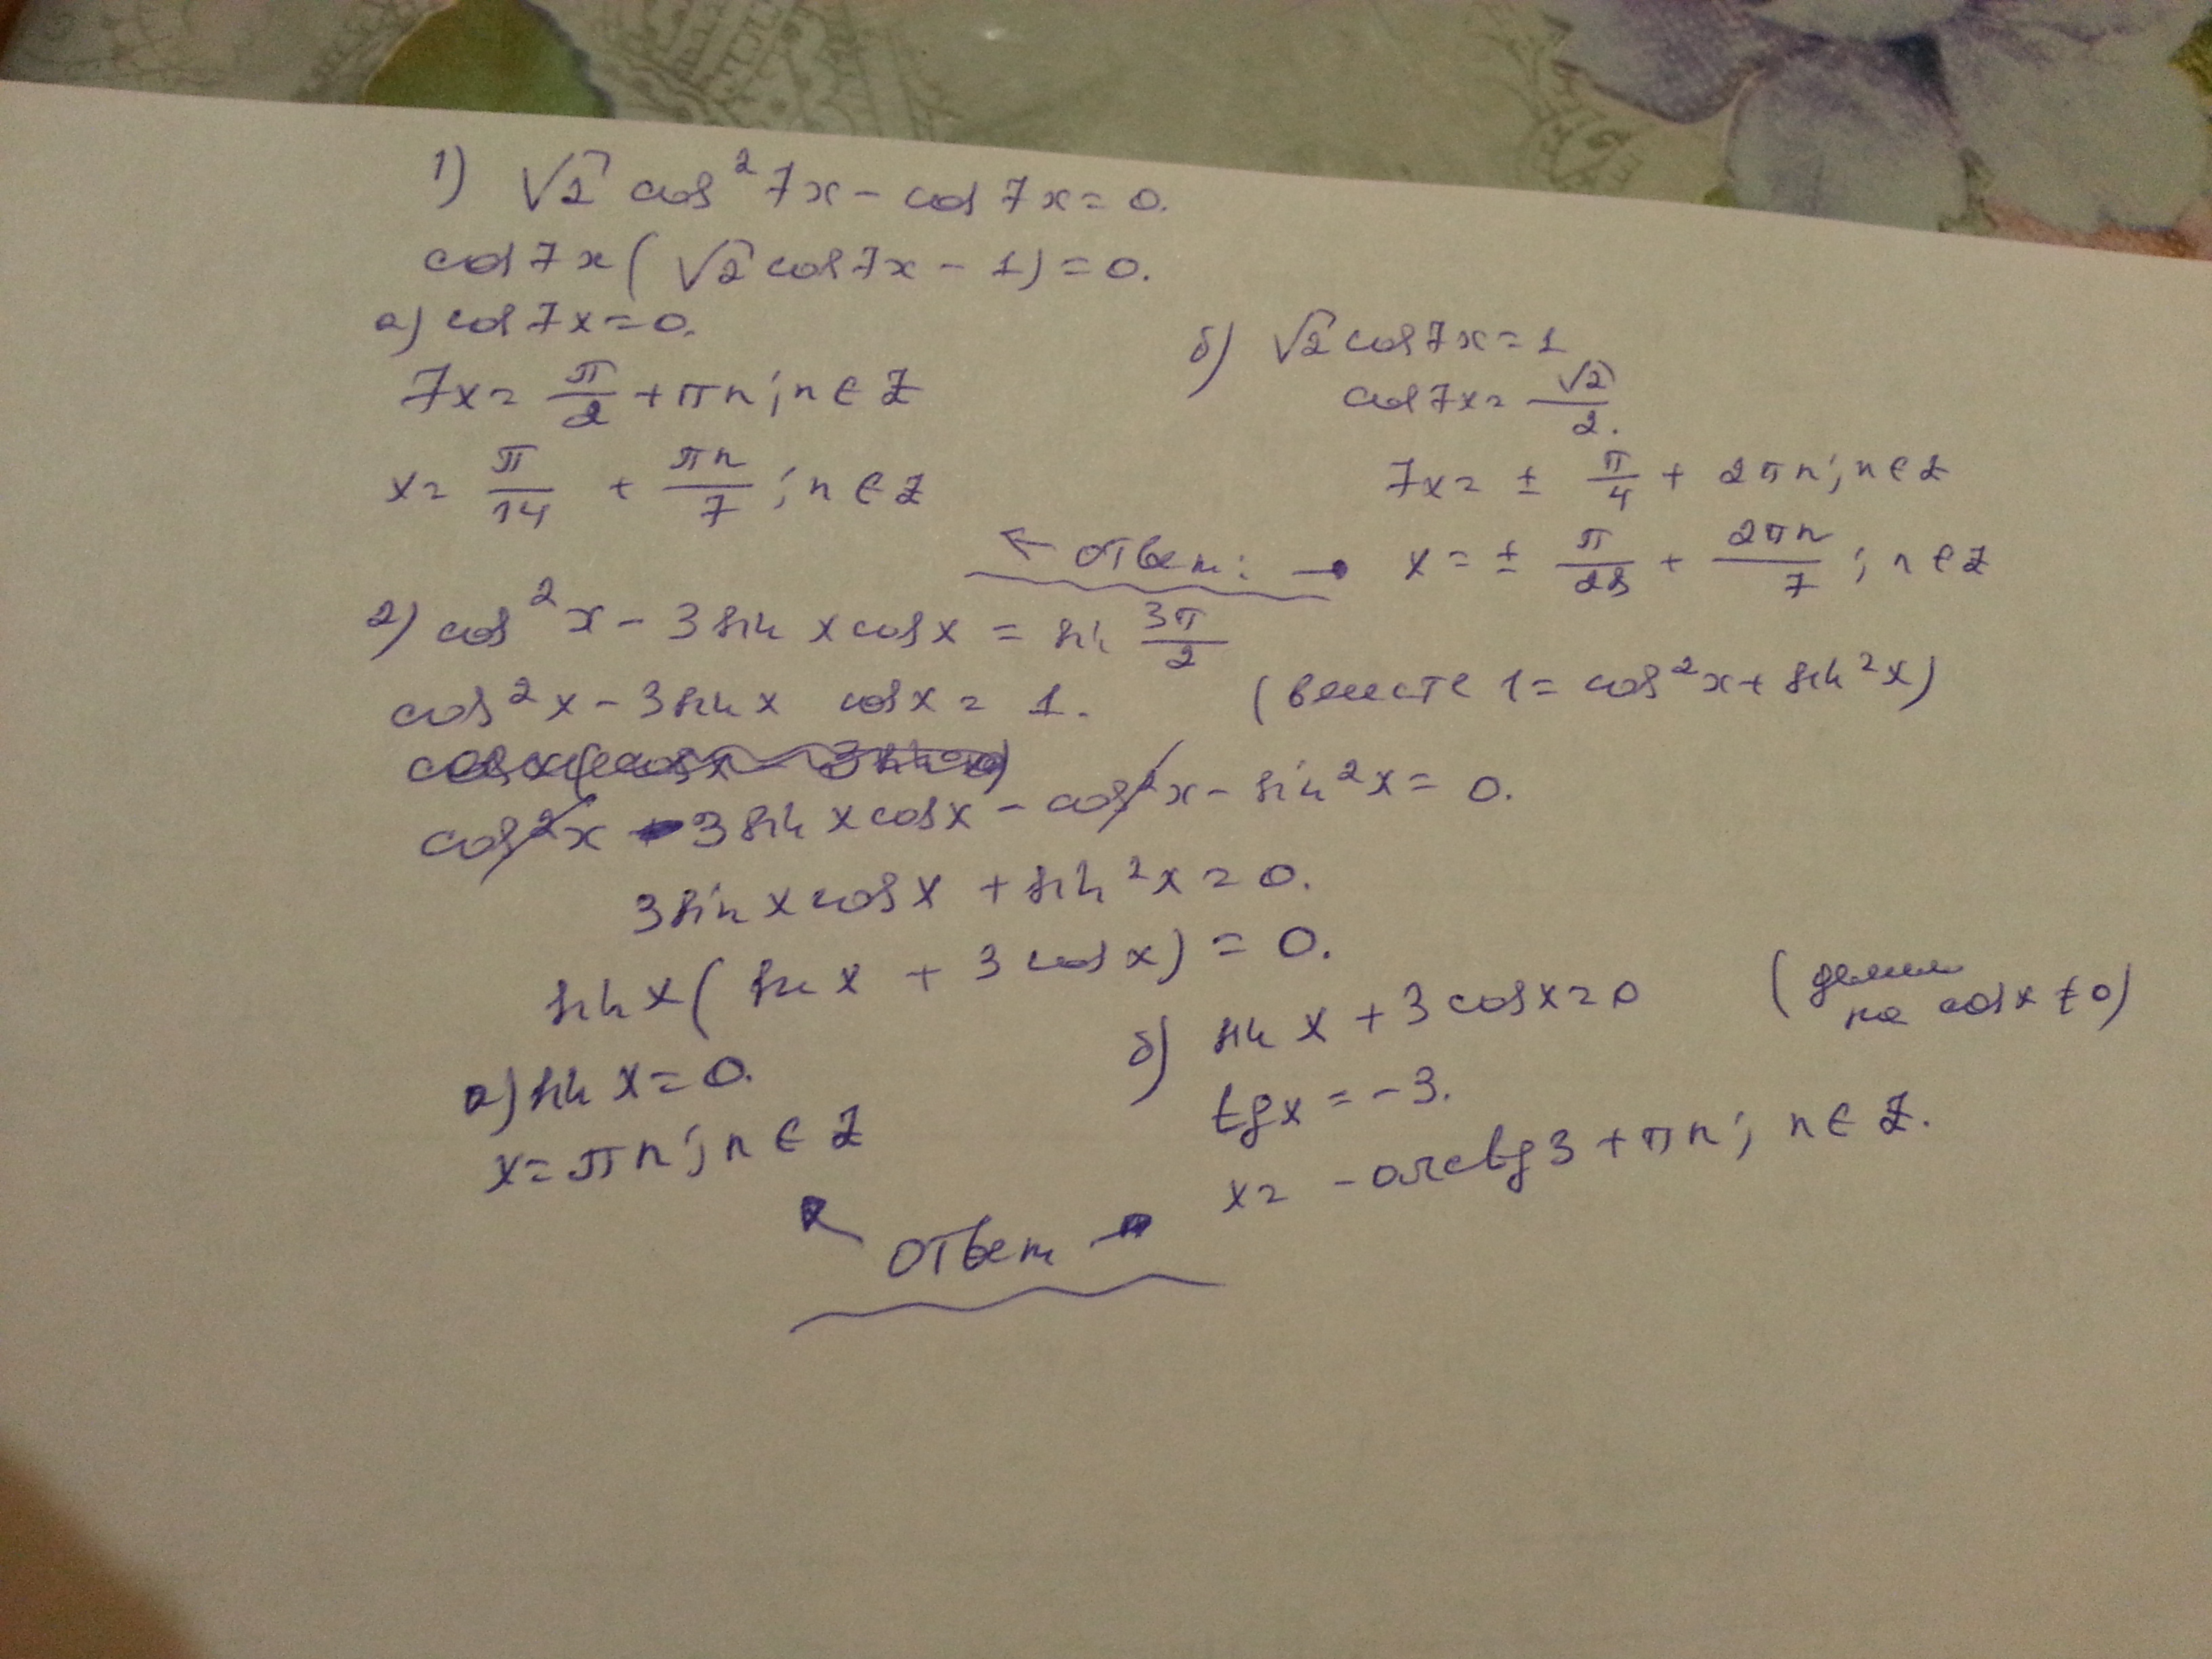 1) √2 cos²7x − cos 7x = 0.
cos 7x (√2 cos 7x − 1) = 0.
а) cos 7x = 0.
7x = π/2 + πn; n ∈ Z
x = π/14 + πn/7; n ∈ Z
б) √2 cos 7x = 1
cos 7x = √2/2.
7x = ± π/4 + 2πn; n ∈ Z
← ответ: → x = ± π/28 + 2πn/7; n ∈ Z
2) cos²x − 3 sin x cos x = sin 3π/2
cos²x − 3 sin x cos x = 1. (вместе 1 = cos²x + sin²x)
cos²x − 3 sin x cos x − cos²x − sin²x = 0.
3 sin x cos x + sin²x = 0.
sin x (sin x + 3 cos x) = 0.
а) sin x = 0.
x = πn; n ∈ Z
б) sin x + 3 cos x = 0 (делим на cos x ≠ 0)
tg x = −3.
x = − arctg 3 + πn; n ∈ Z.
← ответ →